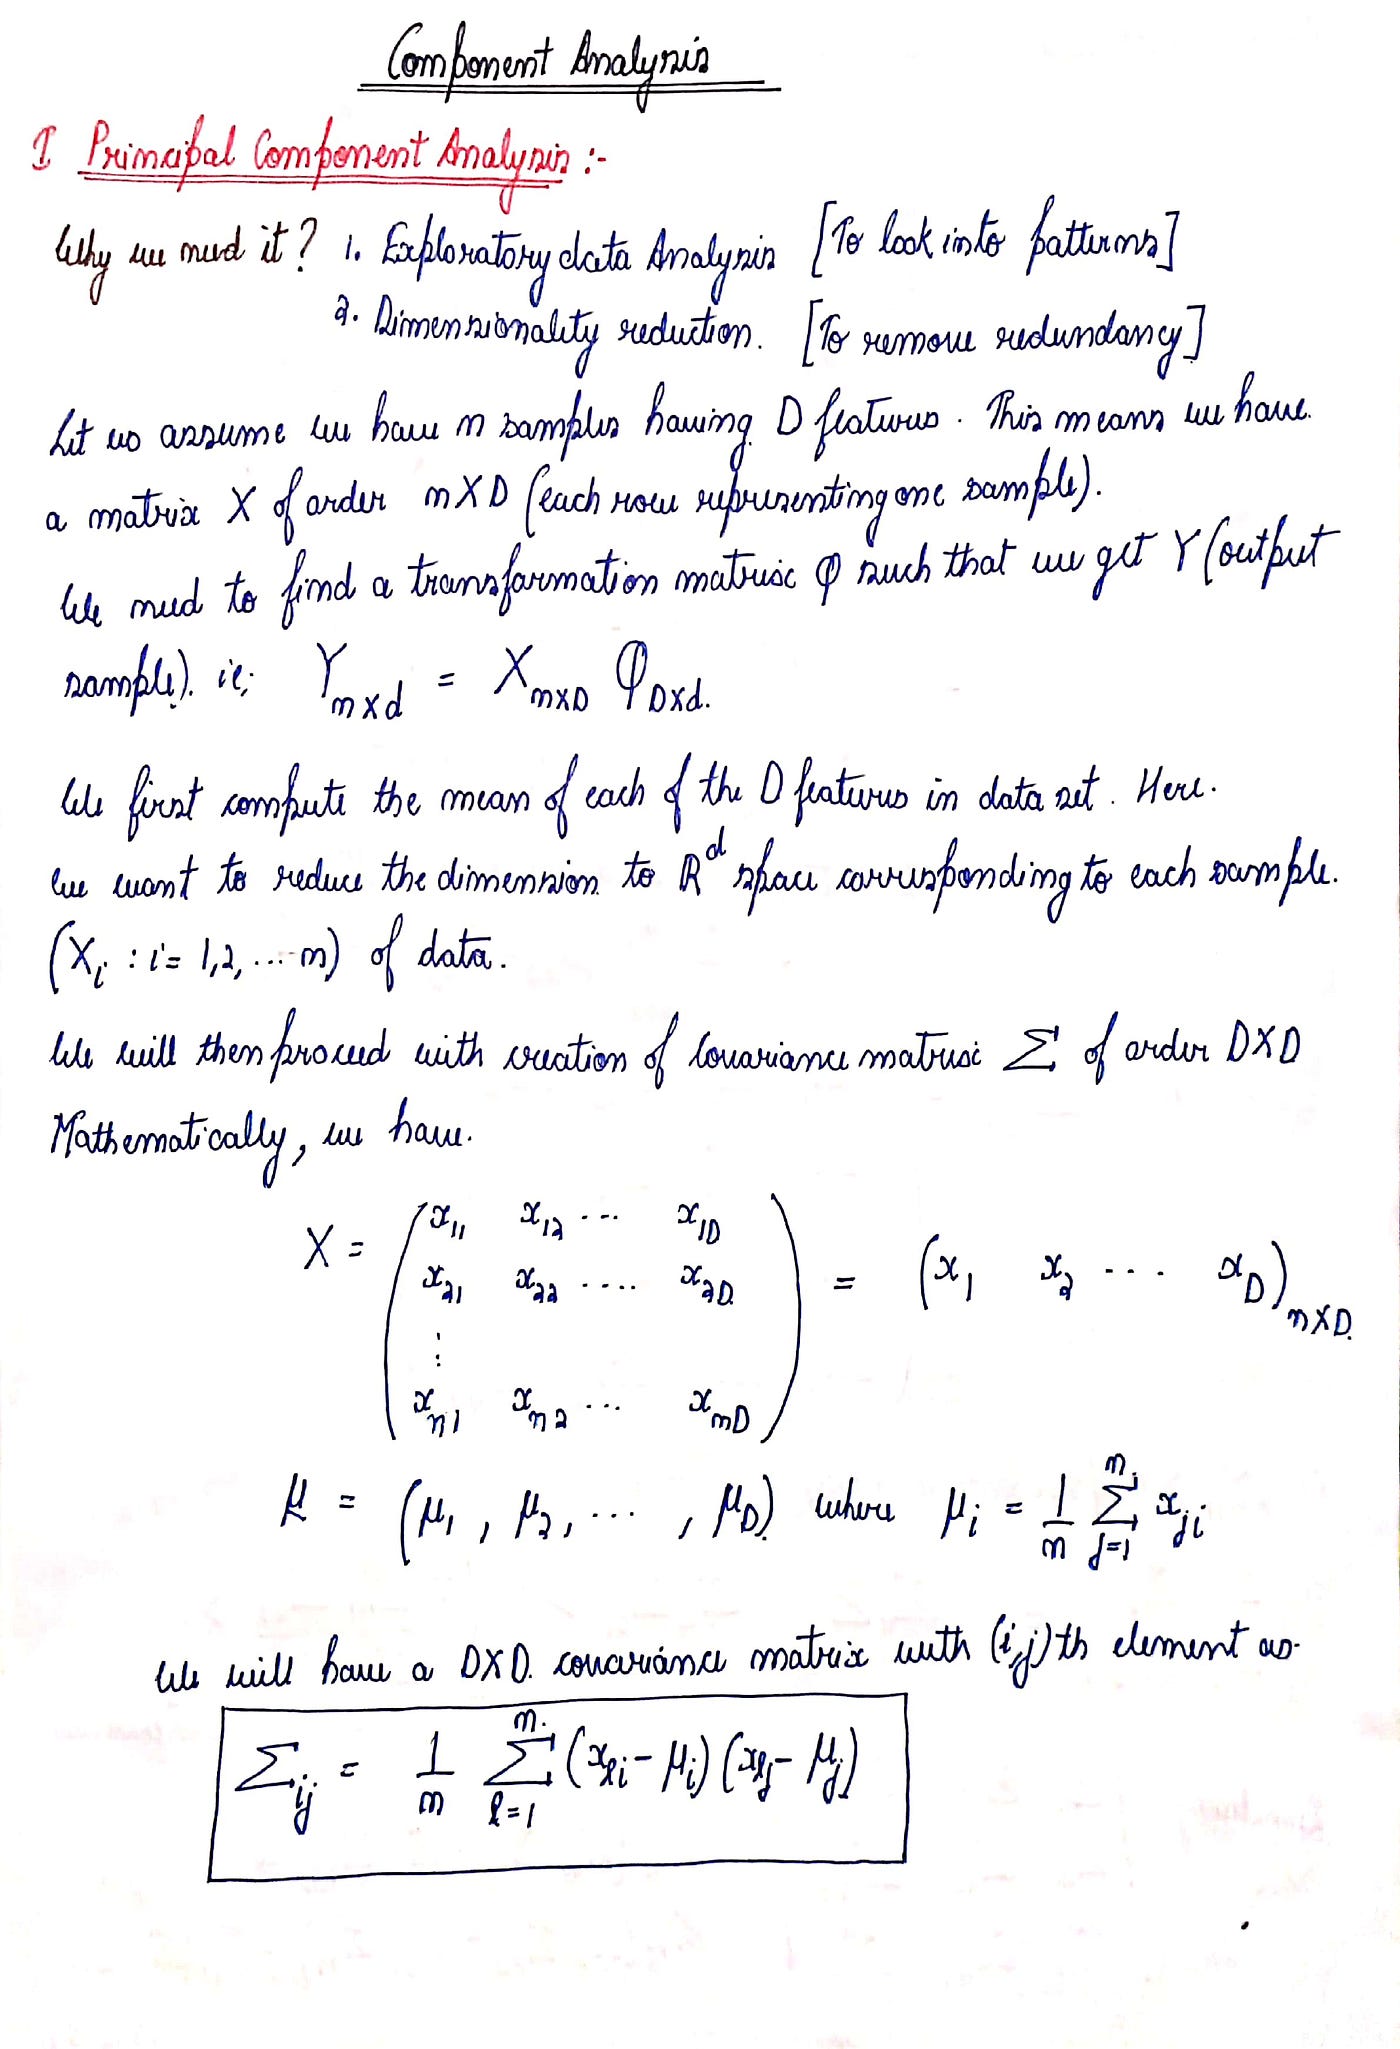 Component Analysis
I Principal Component Analysis :-
Why we need it? 1. Exploratory data Analysis [To look into patterns]
2. Dimensionality reduction. [To remove redundancy]
Let us assume we have n samples having D features. This means we have.
a matrix X of order n×D (each row representing one sample).
We need to find a transformation matrix φ such that we get Y (output
sample). ie; Y_{n×d} = X_{n×D} φ_{D×d}.
We first compute the mean of each of the D features in data set. Here.
we want to reduce the dimension to R^d space corresponding to each sample.
(X_i : i = 1,2, ... n) of data.
We will then proceed with creation of covariance matrix Σ of order D×D
Mathematically, we have.
X = ( x_{11} x_{12} ... x_{1D}
x_{21} x_{22} .... x_{2D}
⋮
x_{n1} x_{n2} ... x_{nD} ) = (x_1 x_2 ... x_D)_{n×D}.
μ = (μ_1, μ_2, ... , μ_D) where μ_i = 1/n Σ_{j=1}^{n} x_{ji}
We will have a D×D. covariance matrix with (i,j)th element as.
Σ_{ij} = 1/n Σ_{l=1}^{n} (x_{li} - μ_i) (x_{lj} - μ_j)